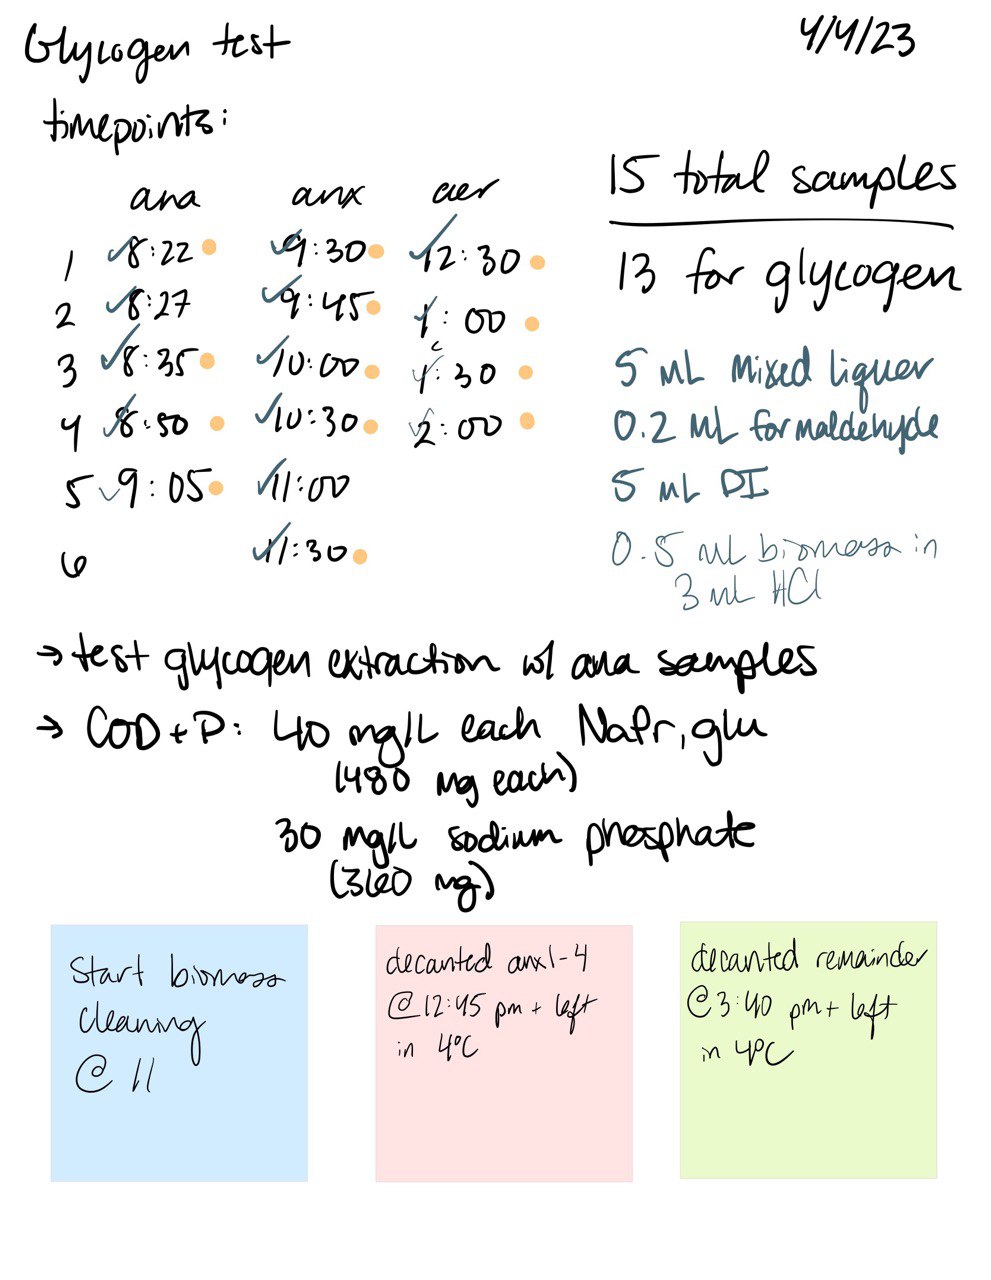 Glycogen test
4/4/23
timepoints:
ana anx aer
1 ✓8:22 ✓9:30 ✓12:30
2 ✓8:27 ✓9:45 ✓1:00
3 ✓8:35 ✓10:00 ✓1:30
4 ✓8:50 ✓10:30 ✓2:00
5 ✓9:05 ✓11:00
6 ✓11:30
15 total samples
13 for glycogen
5 mL Mixed liquer
0.2 mL formaldehyde
5 mL DI
0.5 mL biomass in
3 mL HCl
→ test glycogen extraction w/ ana samples
→ COD+P: 40 mg/L each NaPr, glu
(480 mg each)
30 mg/L sodium phosphate
(360 mg)
Start biomass
cleaning
@ 11
decanted anx1-4
@ 12:45 pm + left
in 4°C
decanted remainder
@ 3:40 pm + left
in 4°C